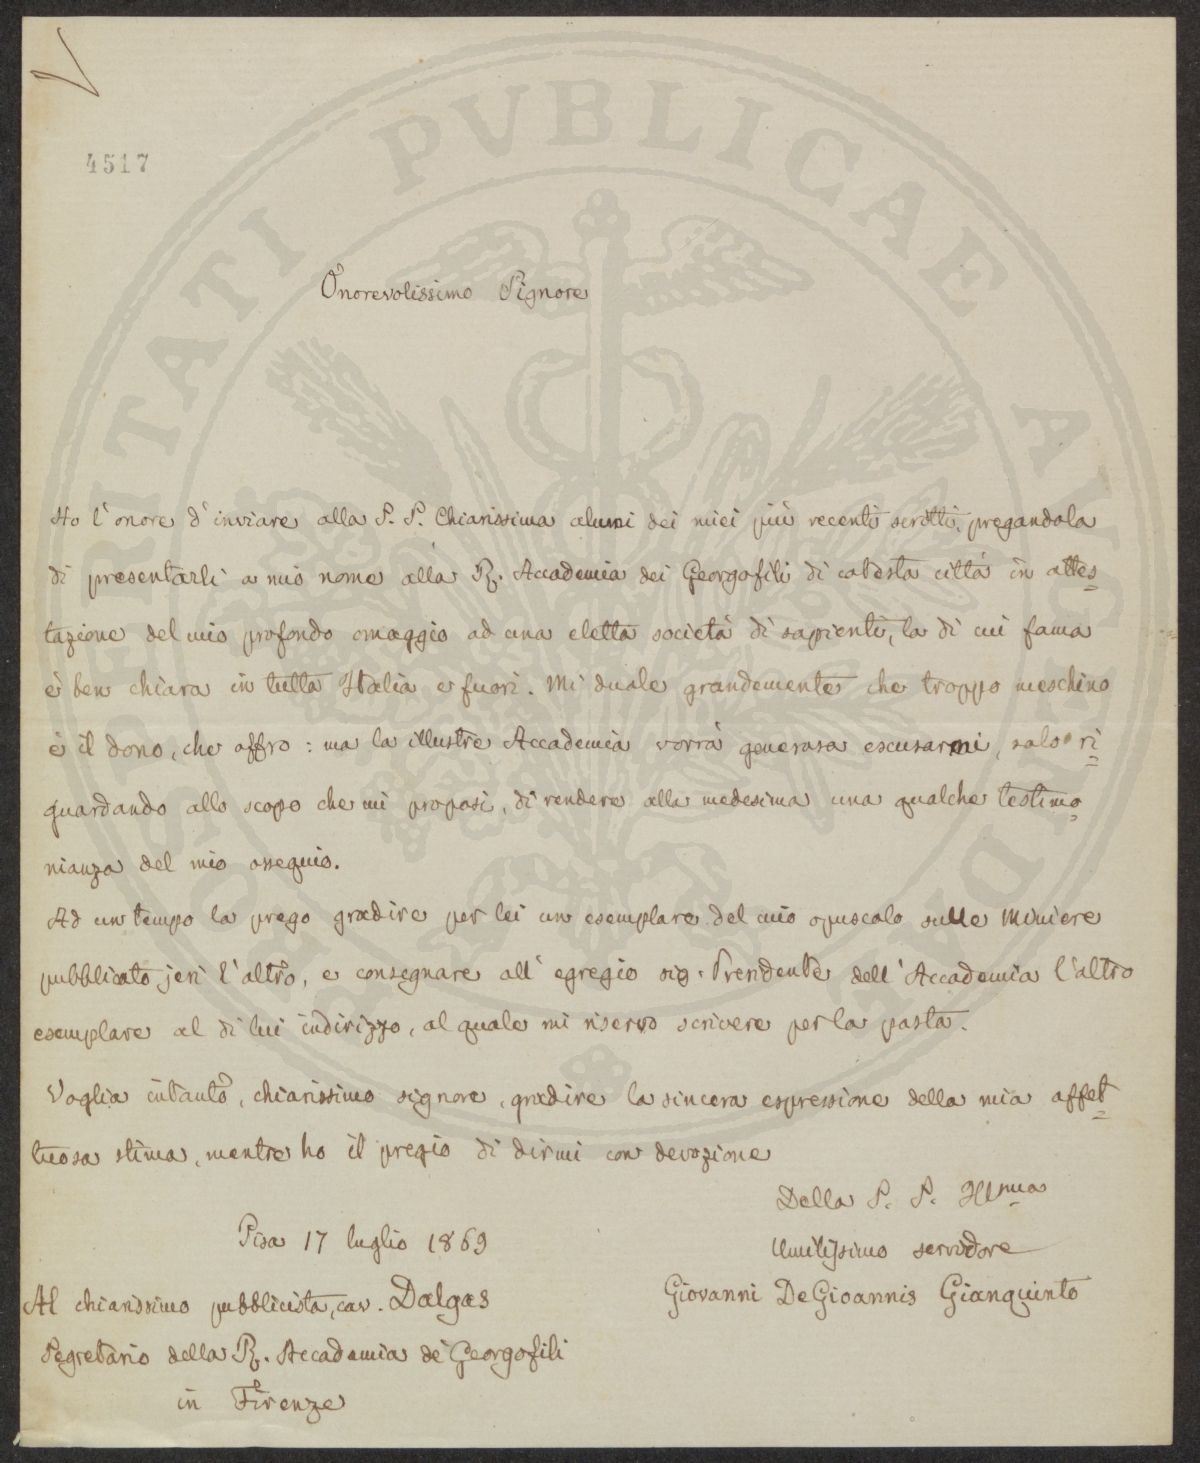 4517
Onorevolissimo Signore
Ho l'onore d'inviare alla S. S. Chiarissima alcuni dei miei più recenti scritti, pregandola
di presentarli a mio nome alla R. Accademia dei Georgofili di cotesta città in attes=
tazione del mio profondo omaggio ad una eletta società di sapienti, la di cui fama
è ben chiara in tutta Italia e fuori. Mi duole grandemente che troppo meschino
è il dono, che offro: ma la illustre Accademia vorrà generosa escusarmi, solo ri=
guardando allo scopo che mi proposi, di rendere alla medesima una qualche testimo=
nianza del mio ossequio.
Ad un tempo la prego gradire per lei un esemplare del mio opuscolo sulle Miniere
pubblicato jeri l'altro, e consegnare all'egregio sig. Presidente dell'Accademia l'altro
esemplare al di lui indirizzo, al quale mi riservo scrivere per la posta.
Voglia intanto, chiarissimo signore, gradire la sincera espressione della mia affet=
tuosa stima, mentre ho il pregio di dirmi con devozione
Della S. S. Ill.ma
Umilissimo servidore
Giovanni DeGioannis Gianquinto
Pisa 17 luglio 1869
Al chiarissimo pubblicista, cav. Dalgas
Segretario della R. Accademia de' Georgofili
in Firenze
PROSPERITATI PVBLICAE AVGENDAE